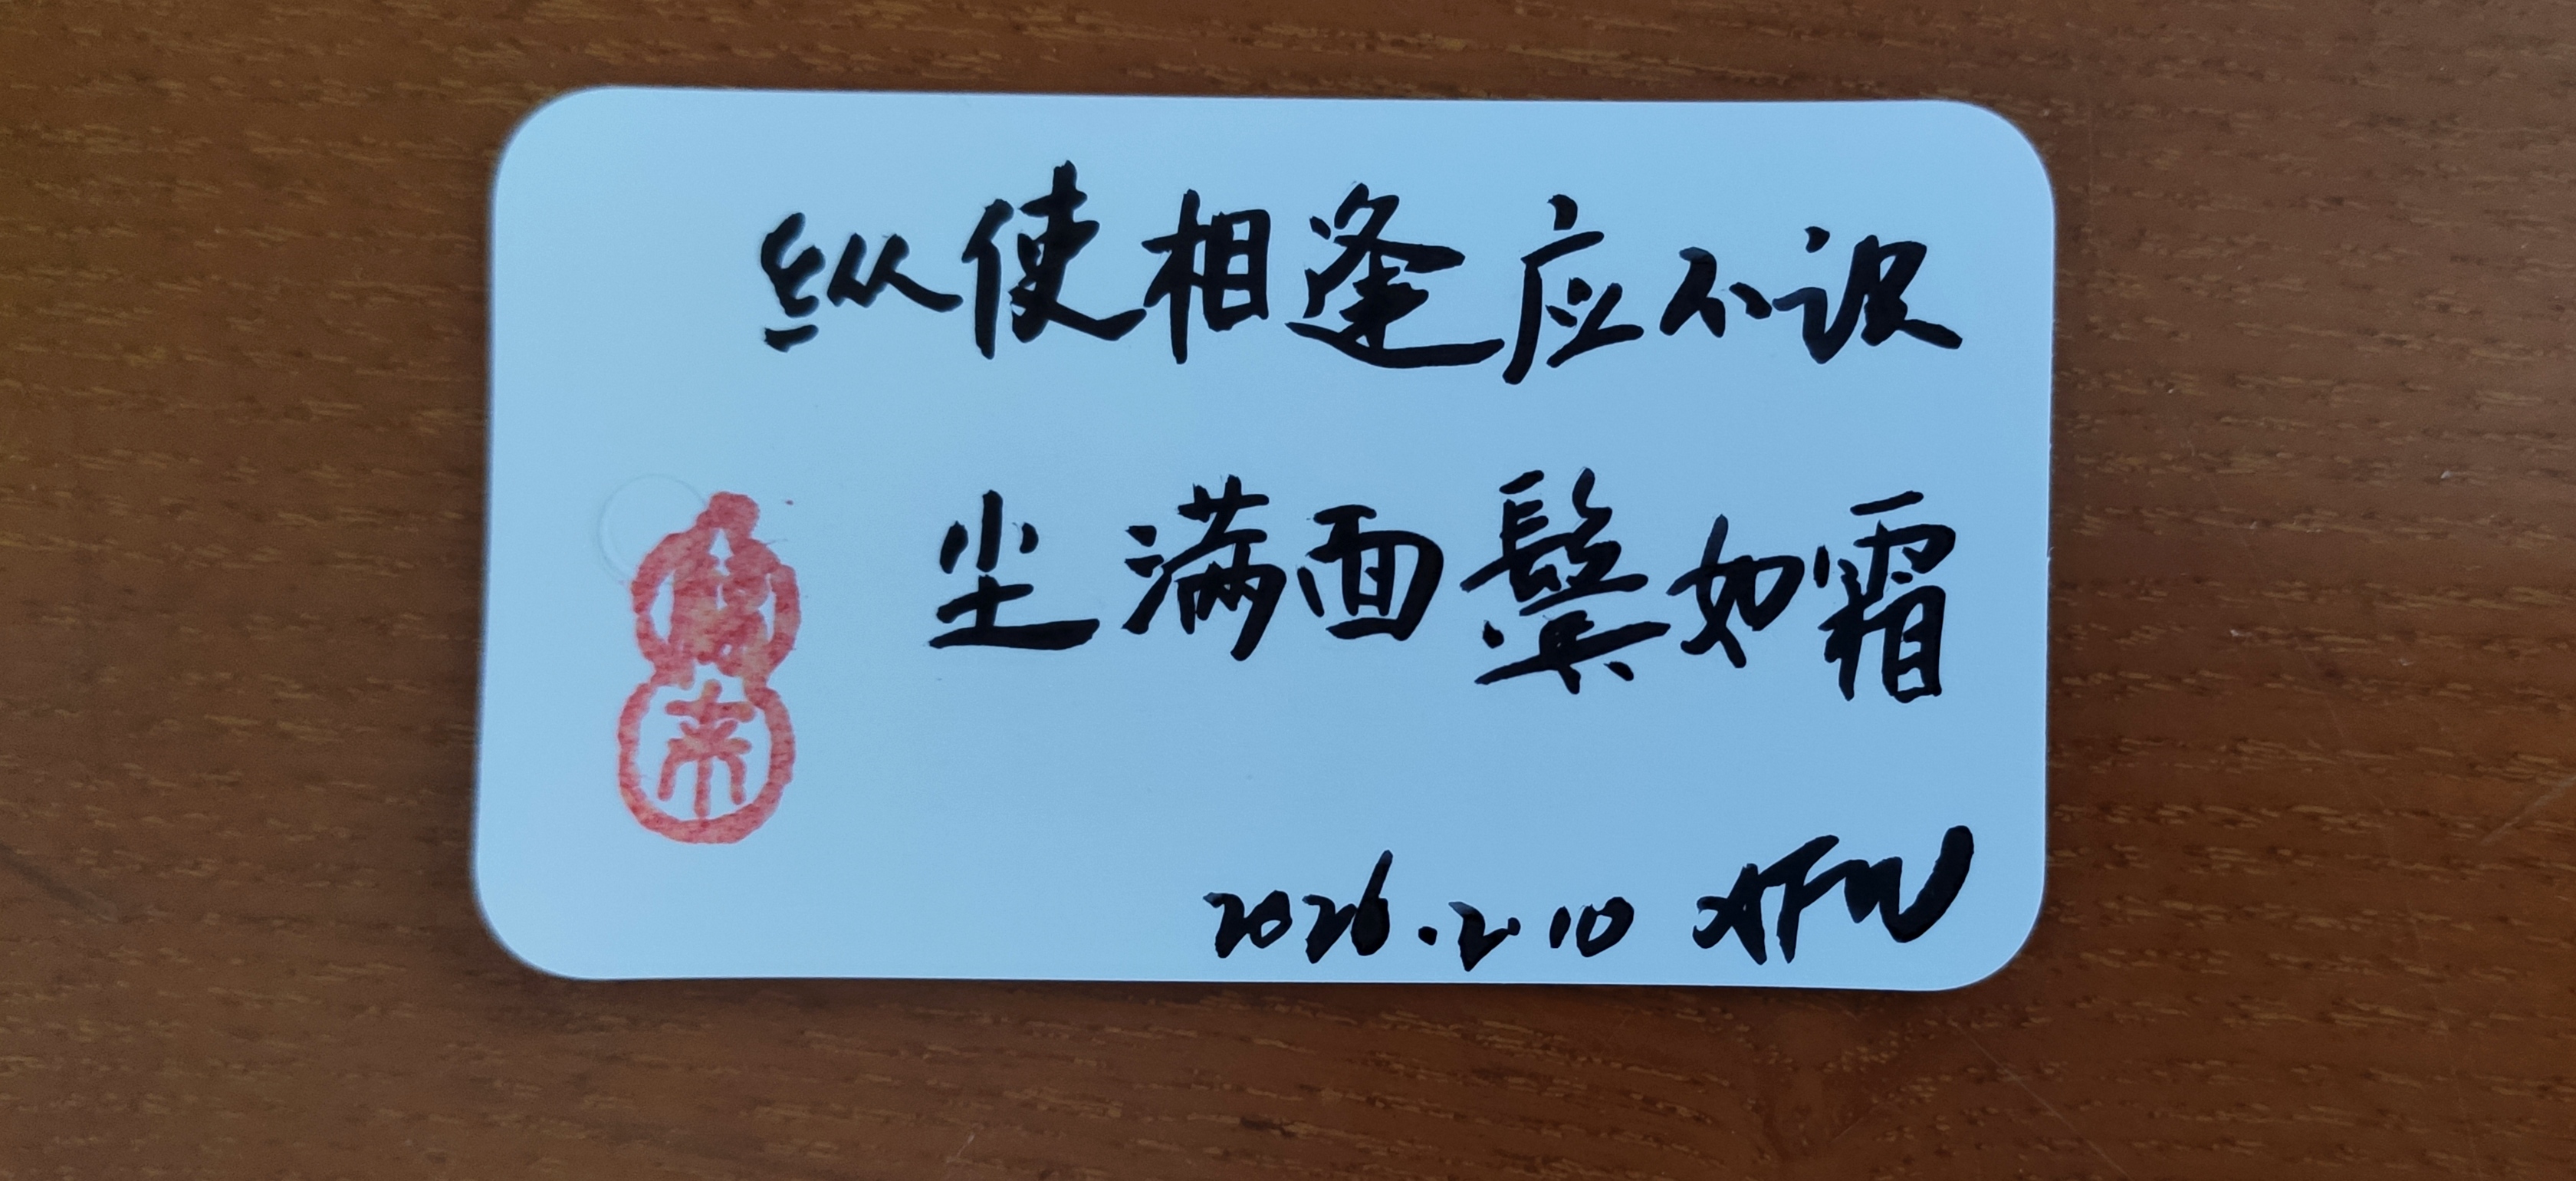 纵使相逢应不识
尘满面鬓如霜
2026.2.10 AFW
来